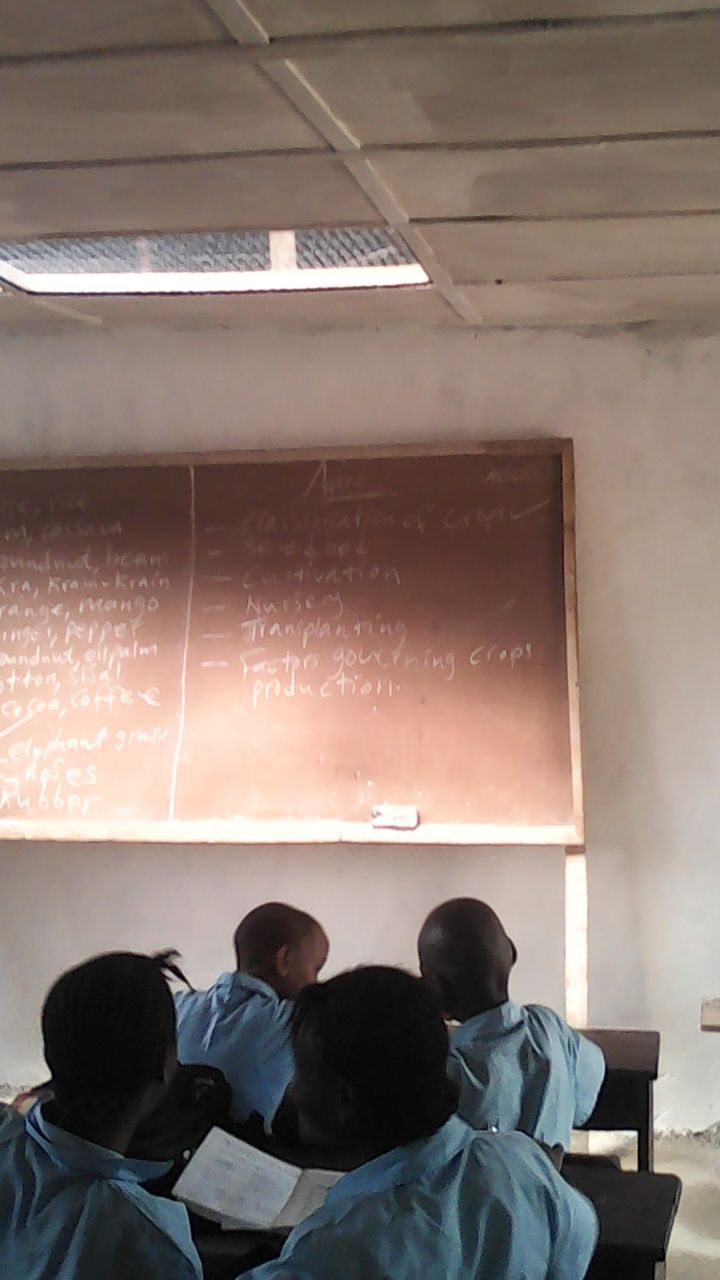 rice
m, cassava
oundnut, beans
kra, Krain-Krain
range, mango
inger, pepper
oundnut, oil palm
otton, sisal
cocoa, coffee
elephant grass
Roses
Rubber
Agric
- Classification of Crops ✓
- Seedbed
- Cultivation
- Nursery
- Transplanting
- Factors governing crops
production.